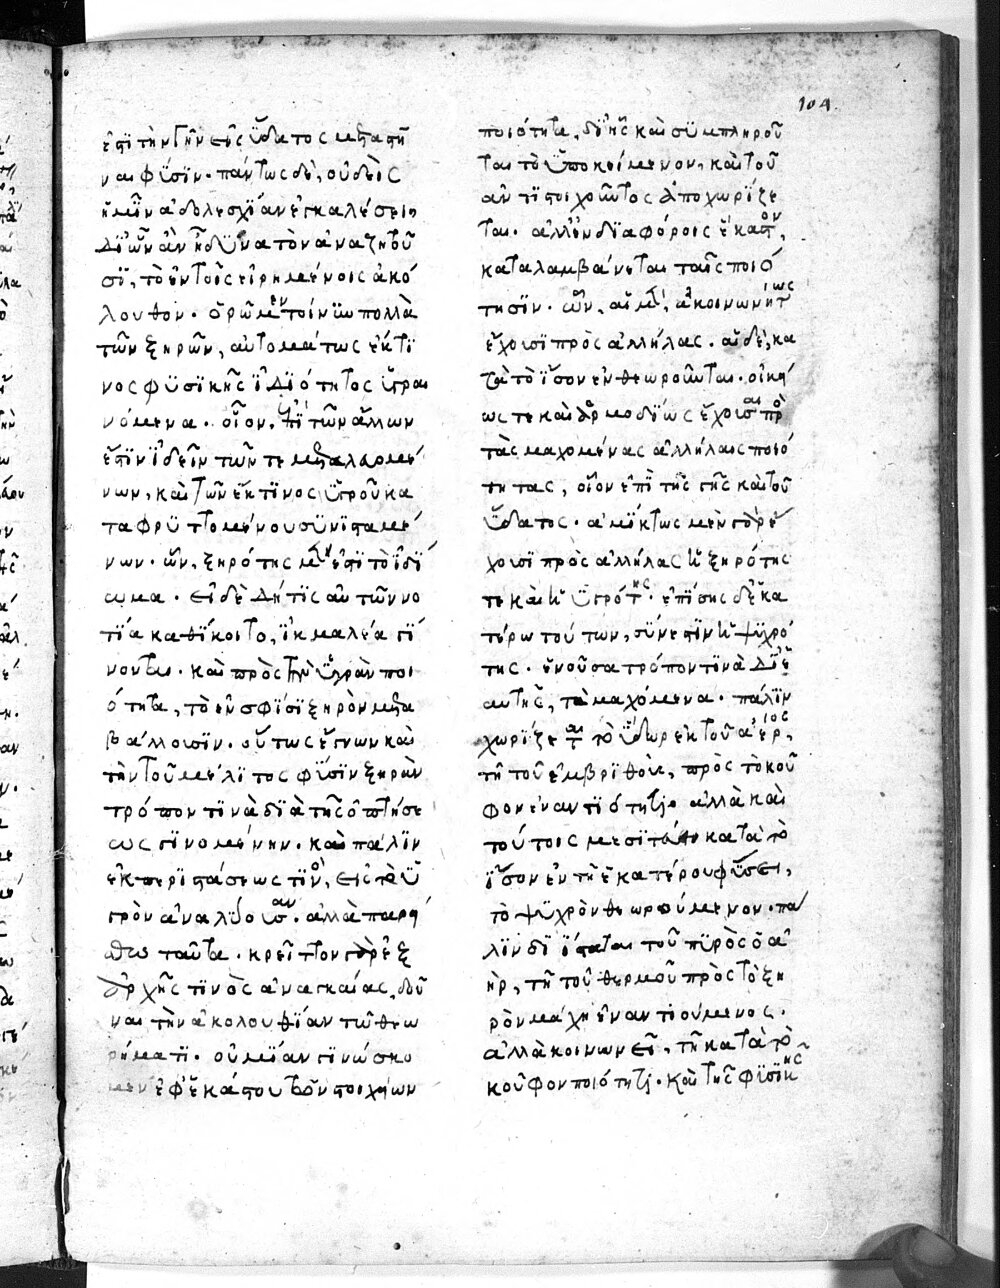 104
ἐπὶ τὴν γῆν εἰς ὕδατος μεταστῆ
ναι φύσιν. πάντως δὲ, οὐδεὶς
ἡμῖν ἀδολεσχίαν ἐγκαλέσει,
δι' ὧν ἂν ᾖ δυνατὸν ἀναζητοῦ
σι, τὸ ἐν τοῖς εἰρημένοις ἀκό
λουθον. ὁρῶμεν τοίνυν πολλὰ
τῶν ξηρῶν, αὐτομάτως ἔκ τι
νος φυσικῆς ἰδιότητος ὑγραι
νόμενα. οἷον, ἐπὶ τῶν ἁλῶν
ἔστιν ἰδεῖν τῶν τε μεταλλομέ
νων, καὶ τῶν ἔκ τινος ὑγροῦ κα
ταφρυττομένου συνισταμέ
νων. ὧν, ξηρότης μέν ἐστι τὸ ἰδί
ωμα. εἰ δὲ δή τις αὐτῶν νο
τία καθίκοιτο, ἰκμαλέα γί
νονται. καὶ πρὸς τὴν ὑγρὰν ποι
ότητα, τὸ ἐν σφίσι ξηρὸν μετα
βάλλουσιν. οὕτως ἔγνων καὶ
τὴν τοῦ μέλιτος φύσιν ξηρὰν
τρόπον τινὰ διὰ τῆς ὀπτήσε
ως γινομένην. καὶ πάλιν
ἐκ περιστάσεως τινὸς, εἰς τὸ ὑ
γρὸν ἀναλύουσαν. ἀλλὰ παρεί
σθω ταῦτα. κρεῖττον γὰρ ἐξ
ἀρχῆς τινὸς ἀναγκαίας, δοῦ
ναι τὴν ἀκολουθίαν τῶ θεω
ρήματι. οὐ μίαν γινώσκο
μεν ἐφ' ἑκάστου τῶν στοιχείων
ποιότητα, δι' ἧς καὶ συμπληροῦ
ται τὸ ὑποκείμενον, καὶ τοῦ
ἀντιστοιχοῦντος ἀποχωρίζε
ται. ἀλλ' ἐν διαφόροις ἕκαστον,
καταλαμβάνεται ταῖς ποιό
τησιν. ὧν, αἱ μὲν, ἀκοινωνήτως
ἔχουσι πρὸς ἀλλήλας. αἱ δὲ, κα
τὰ τὸ ἴσον ἐνθεωροῦνται. οἰκεί
ως τε καὶ ἁρμοδίως ἔχουσαι πρὸ
τὰς μαχομένας ἀλλήλαις ποιό
τητας, οἷον ἐπὶ τῆς γῆς καὶ τοῦ
ὕδατος. ἀμίκτως μὲν γὰρ ἔ
χουσι πρὸς ἀλλήλας ἡ ξηρότης
τε καὶ ἡ ὑγρότης. ἐπίσης δὲ ἑκα
τέρω τούτων, σύνεστιν ἡ ψυχρό
της. ἑνοῦσα τρόπον τινὰ δι' ἑ
αυτῆς, τὰ μαχόμενα. πάλιν
χωρίζεται τὸ ὕδωρ ἐκ τοῦ ἀέρος,
τῆ τοῦ ἐμβριθοῦς, πρὸς τὸ κοῦ
φον ἐναντιότητι. ἀλλὰ καὶ
τούτοις μεσιτεύει κατὰ τὸ
ἴσον ἐν τῆ ἑκατέρου φύσει,
τὸ ψυχρὸν θεωρούμενον. πά
λιν διίσταται τοῦ πυρὸς ὁ ἀ
ὴρ, τῆ τοῦ θερμοῦ πρὸς τὸ ξη
ρὸν μάχη ἐναντιούμενος.
ἀλλὰ κοινωνεῖ, τῆ κατὰ τὸ
κοῦφον ποιότητι. καὶ τῆς φυσικῆς